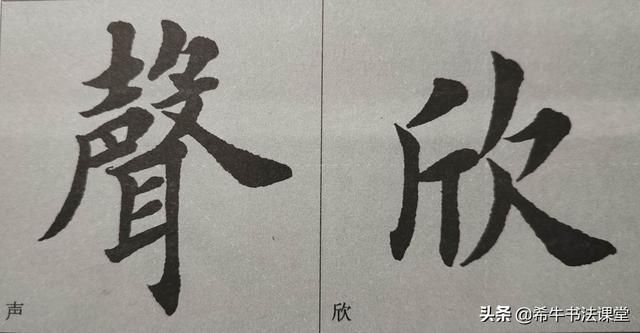 聲 欣
声 欣
头条 @希牛书法课堂